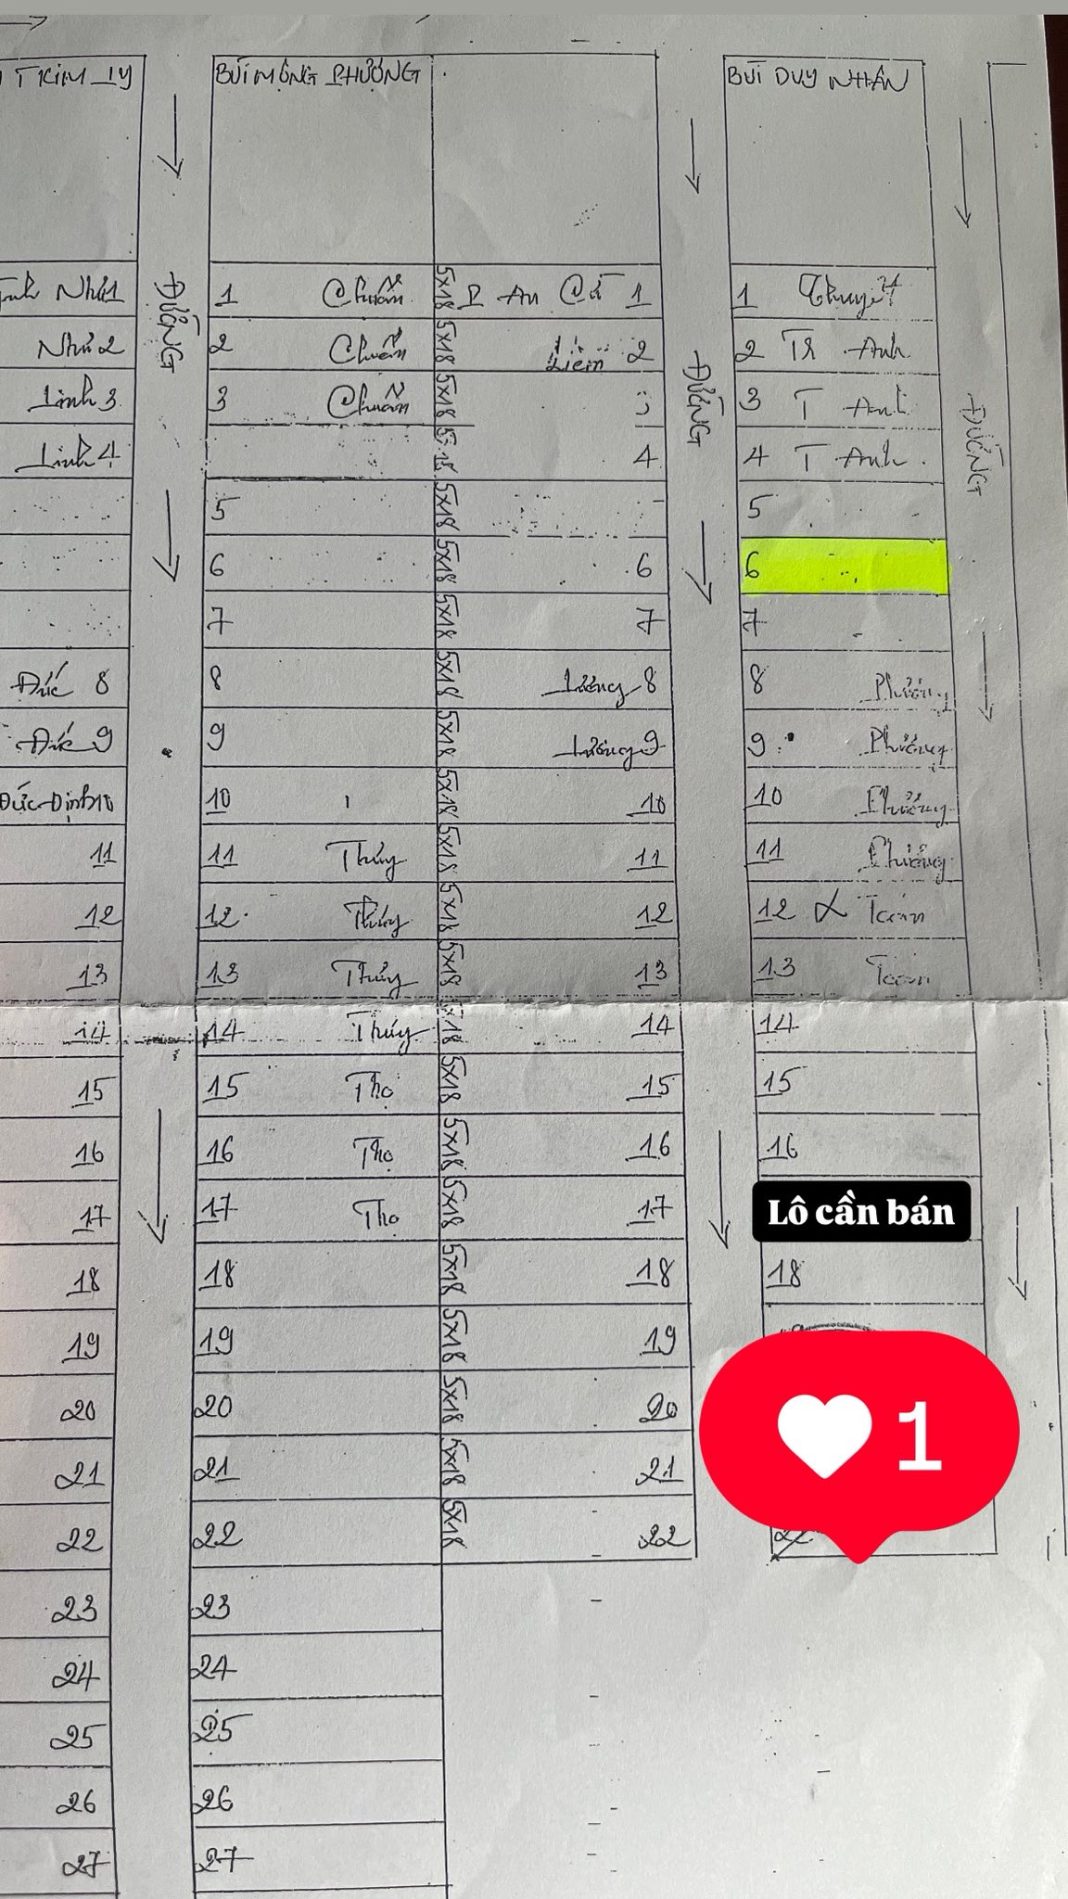 T KIM LY
BÙI MỘNG PHƯỢNG
BÙI DUY NHÂN
ĐƯỜNG
ĐƯỜNG
ĐƯỜNG
Nhú 1 1 Chuẩn 5x18 An Cá 1 1 Thuyết
Nhú 2 2 Chuẩn 5x18 Liêm 2 2 TR Anh
Linh 3 3 Chuẩn 5x18 3 3 T Anh
Linh 4 4 4 T Anh
5 5x18 5
6 5x18 6 6
7 5x18 7 7
Đức 8 8 5x18 Lương 8 8 Phượng
Đức 9 9 5x18 Lương 9 9 Phượng
Đức-Định 10 10 5x18 10 10 Phượng
11 11 Thúy 5x18 11 11 Phượng
12 12 Thúy 5x18 12 12 Toán
13 13 Thúy 5x18 13 13 Toán
14 14 Thúy 14 14
15 15 Thọ 5x18 15 15
16 16 Thọ 5x18 16 16
17 17 Thọ 5x18 17 Lô cần bán
18 18 5x18 18 18
19 19 5x18 19
20 20 5x18 20
21 21 5x18 21
22 22 5x18 22
23 23
24 24
25 25
26 26
27 27
1